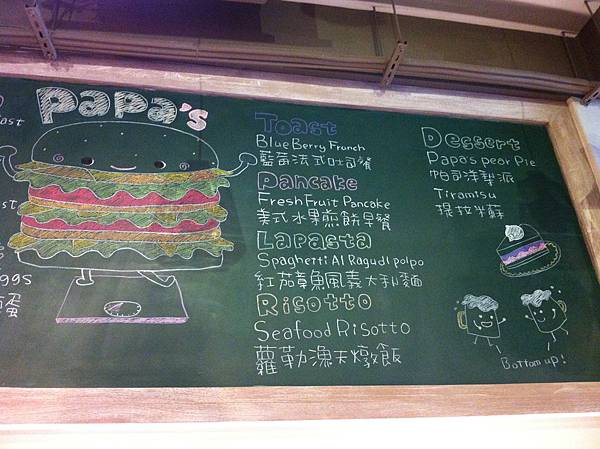 PaPa's
Toast
Blue Berry French
藍莓法式吐司餐
Pancake
Fresh Fruit Pancake
美式水果煎餅早餐
Lapasta
Spaghetti Al Ragu di polpo
紅茄章魚風義大利麵
Risotto
Seafood Risotto
蘿勒漁夫燉飯
Dessert
Papa's pear Pie
帕司洋梨派
Tiramisu
提拉米蘇
Bottom up!